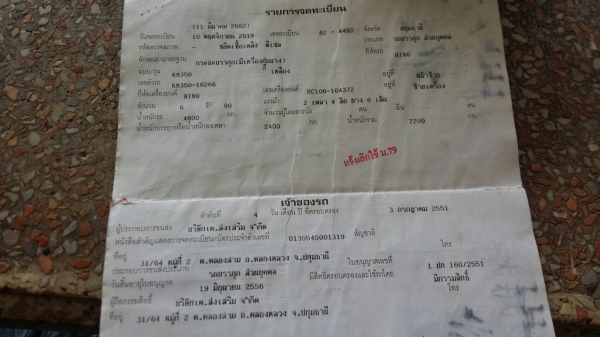 รายการจดทะเบียน
(11 มีนาคม 2552)
วันจดทะเบียน 10 พฤศจิกายน 2519 เลขทะเบียน 82 - 4483 จังหวัด ปทุมธานี
ชนิดเชื้อเพลิง ดีเซล ประเภท รถบรรทุก ส่วนบุคคล
ลักษณะ/มาตรฐาน กระบะบรรทุก(มีเครื่องทุ่นแรง) ยี่ห้อรถ HINO
แบบ/รุ่น KB350 สี เหลือง
เลขตัวรถ KB350-16266 อยู่ที่
ยี่ห้อเครื่องยนต์ HINO เลขเครื่องยนต์ EC100-104372 อยู่ที่ ซ้ายเครื่อง
จำนวน 6 สูบ 90 แรงม้า 2 เพลา 4 ล้อ ยาง 6 เส้น
น้ำหนักรถ 4800 กก. จำนวนผู้โดยสารนั่ง คน ยืน คน
น้ำหนักบรรทุกหรือน้ำหนักลงเพลา 2400 กก. น้ำหนักรวม 7200 กก.
แจ้งเลิกใช้ ม.79
เจ้าของรถ
ลำดับที่ 4 วัน เดือน ปี ที่ครอบครอง 3 กรกฎาคม 2551
ผู้ประกอบการขนส่ง บริษัทเค.ส่งเสริม จำกัด
หนังสือสำคัญแสดงการจดทะเบียน/บัตรประจำตัวเลขที่ 0135545001319 สัญชาติ ไทย
ที่อยู่ 31/64 หมู่ที่ 2 ต.คลองสาม อ.คลองหลวง จ.ปทุมธานี
ประกอบการขนส่งประเภท รถบรรทุก ส่วนบุคคล ใบอนุญาตเลขที่ 1 ปท 160/2551
วันสิ้นอายุใบอนุญาต 19 มิถุนายน 2556 มีสิทธิครอบครองและใช้รถโดย มีกรรมสิทธิ์
ผู้ถือกรรมสิทธิ์ บริษัทเค.ส่งเสริม จำกัด ไทย
ที่อยู่ 31/64 หมู่ที่ 2 ต.คลองสาม อ.คลองหลวง จ.ปทุมธานี